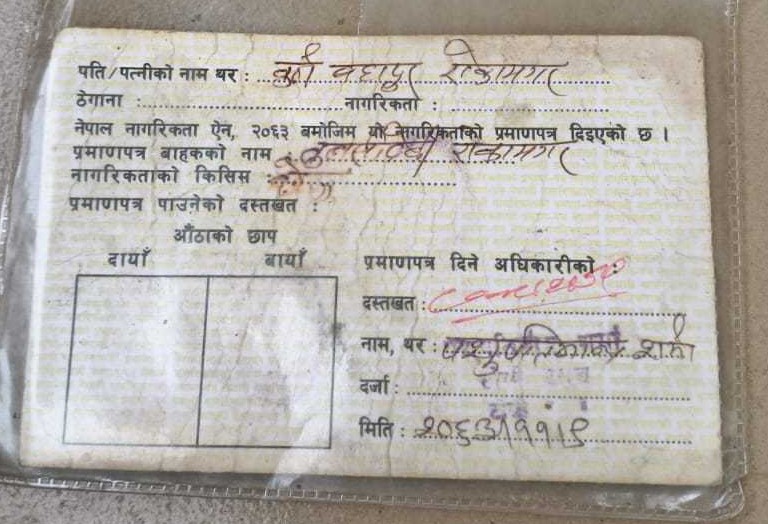 पति/पत्नीको नाम थर : दुर्गा बहादुर रोकामगर
ठेगाना : नागरिकता :
नेपाल नागरिकता ऐन, २०६३ बमोजिम यो नागरिकताको प्रमाणपत्र दिइएको छ ।
प्रमाणपत्र बाहकको नाम : रोकामगर
नागरिकताको किसिम :
प्रमाणपत्र पाउनेको दस्तखत :
औंठाको छाप
दायाँ बायाँ
प्रमाणपत्र दिने अधिकारीको :
दस्तखत :
नाम, थर : शर्मा
दर्जा :
मिति :